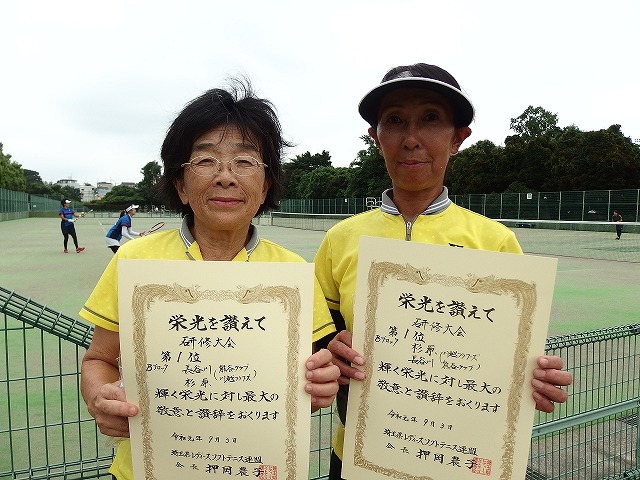 栄光を讃えて
研修大会
第1位
Bブロック 長谷川（熊谷クラブ
杉原
輝く栄光に対し最大の
敬意と讃辞をおくります
令和元年 9月3日
埼玉県レディースソフトテニス連盟
会長 押岡農子
栄光を讃えて
研修大会
第1位
Bブロック 杉原
長谷川（熊谷クラブ
輝く栄光に対し最大の
敬意と讃辞をおくります
令和元年 9月3日
埼玉県レディースソフトテニス連盟
会長 押岡農子